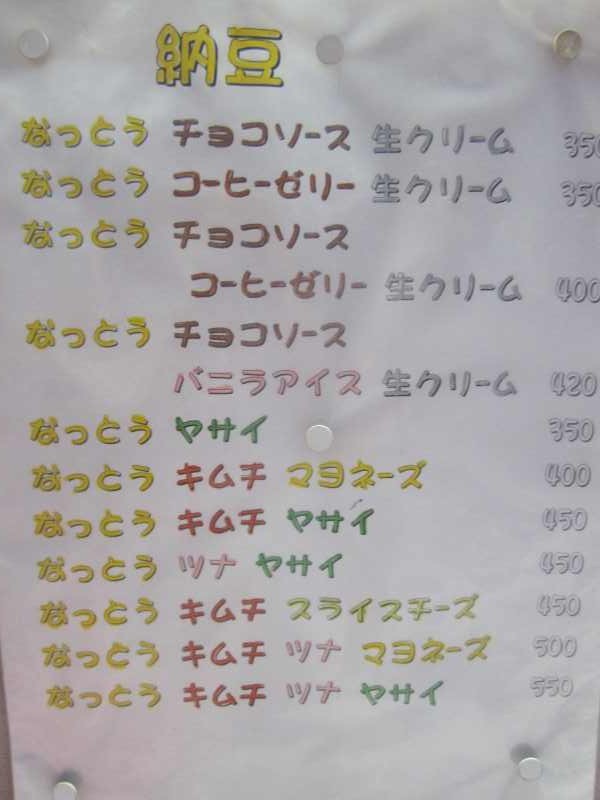 納豆
なっとう チョコソース 生クリーム 350
なっとう コーヒーゼリー 生クリーム 350
なっとう チョコソース
コーヒーゼリー 生クリーム 400
なっとう チョコソース
バニラアイス 生クリーム 420
なっとう ヤサイ 350
なっとう キムチ マヨネーズ 400
なっとう キムチ ヤサイ 450
なっとう ツナ ヤサイ 450
なっとう キムチ スライスチーズ 450
なっとう キムチ ツナ マヨネーズ 500
なっとう キムチ ツナ ヤサイ 550